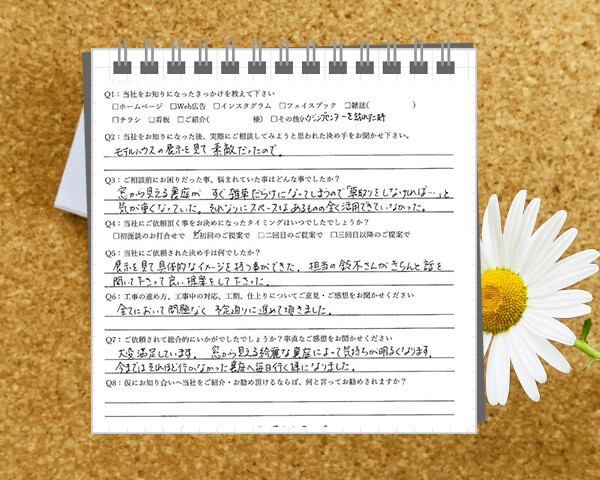 Q1：当社をお知りになったきっかけを教えて下さい
□ホームページ　□Web広告　□インスタグラム　□フェイスブック　□雑誌(　　　　　)
□チラシ　□看板　□ご紹介(　　　　　様)　□その他(　　　　　を訪れた時
Q2：当社をお知りになった後、実際にご相談してみようと思われた決め手をお聞かせ下さい。
モデルハウスの展示を見て素敵だったので。
Q3：ご相談前にお困りだった事、悩まれていた事はどんな事でしたか？
窓から見える裏庭が　すぐ雑草だらけになってしまうので「草取りをしなければ…」と
気が重くなっていた。それなりにスペースはあるものの全く活用できていなかった。
Q4：当社にご依頼頂く事をお決めになったタイミングはいつでしたでしょうか？
□初面談のお打合せで　☑初回のご提案で　□二回目のご提案で　□三回目以降のご提案で
Q5：当社にご依頼された決め手は何でしたか？
展示を見て具体的なイメージを持つ事ができた。担当の鈴木さんがきちんと話を
聞いて下さって良い提案をして下さった。
Q6：工事の進め方、工事中の対応、工期、仕上りについてご意見・ご感想をお聞かせください
全てにおいて問題なく　予定通りに進めて頂きました。
Q7：ご依頼されて総合的にいかがでしたでしょうか？率直なご感想をお聞かせください
大変満足しています。　窓から見える綺麗な裏庭によって気持ちが明るくなります。
今まではそれほど行かなかった裏庭へ毎日行く様になりました。
Q8：仮にお知り合いへ当社をご紹介・お勧め頂けるならば、何と言ってお勧めされますか？